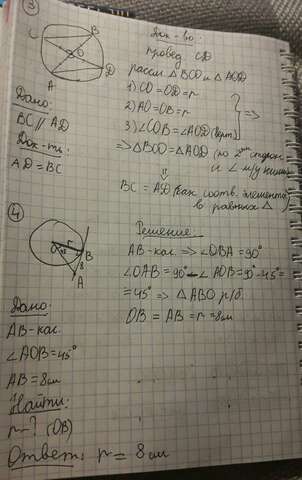 3
Док-во:
провед CD
рассм △BCO и △AOD
1) CO = OD = r
2) AO = OB = r
3) ∠COB = ∠AOD (верт)
=>
=> △BCO = △AOD (по 2ум сторон
и ∠ м/у ними
⇓
BC = AD (как соотв. элементы
в равных △)
C
B
O
D
A
Дано:
BC ∥ AD
Док-ть:
AD = BC
4
O
r
45°
B
8
A
Дано:
AB-кас.
∠AOB = 45°
AB = 8см
Найти:
r - ? (OB)
Решение:
AB-кас. => ∠OBA = 90°
∠OAB = 90° - ∠AOB = 90° - 45° =
= 45° => △ABO р/б.
OB = AB = r = 8см
Ответ: r = 8 см